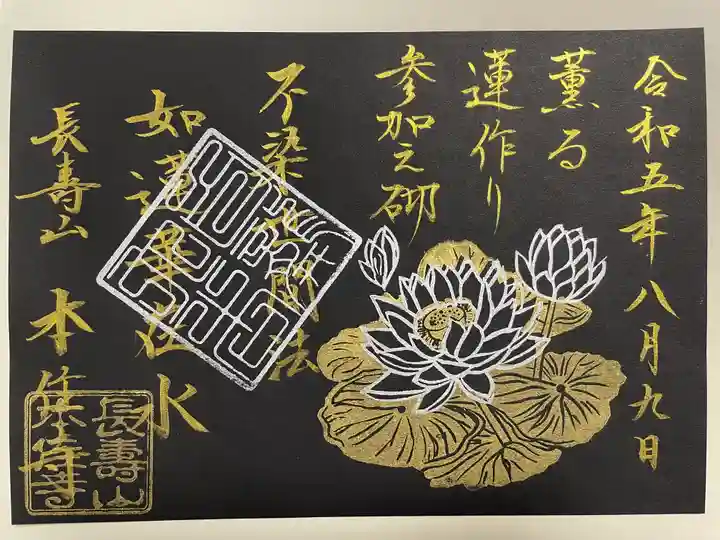 令和五年八月九日
薫る
蓮作り
参加之砌
不染世間法
如蓮華在水
長壽山 本
長壽山